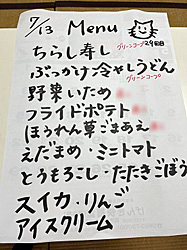 7/13 Menu
ちらし寿し
グリーンコープ29回目
ぶっかけ冷やしうどん
グリーンコープ
野菜いため
フライドポテト
ほうれん草ごまあえ
えだまめ・ミニトマト
とうもろこし・たたきごぼう
スイカ・りんご
アイスクリーム